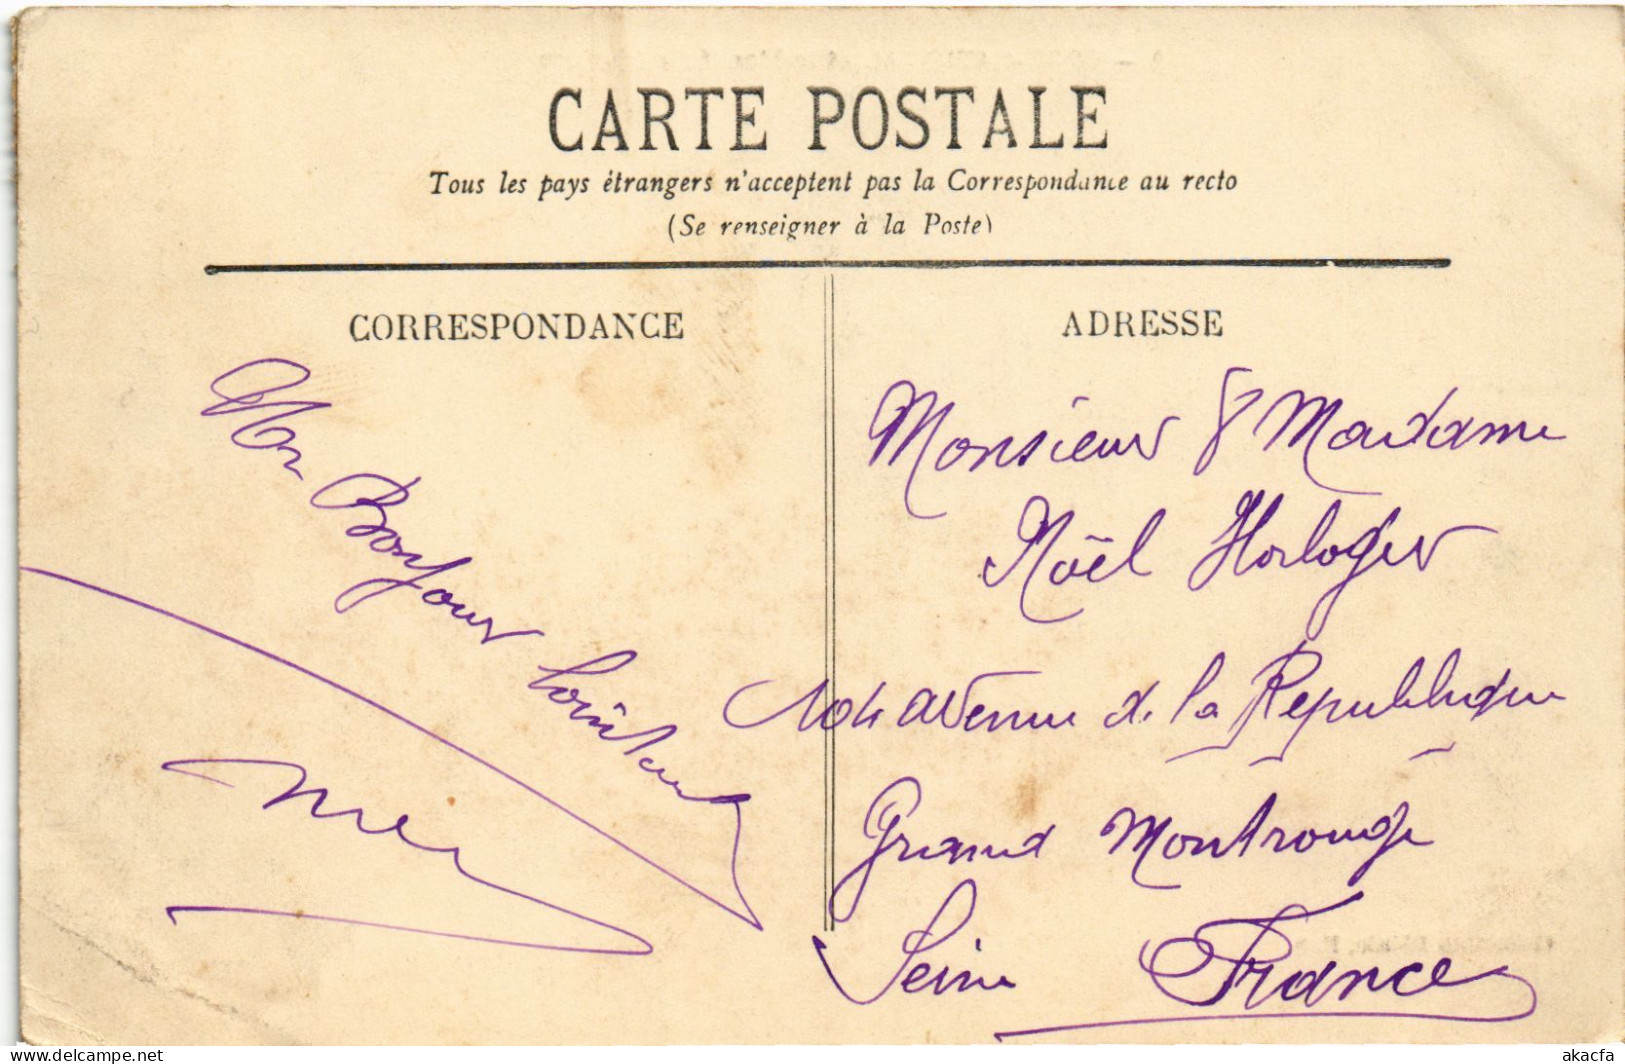 CARTE POSTALE
Tous les pays étrangers n'acceptent pas la Correspondance au recto
(Se renseigner à la Poste)
CORRESPONDANCE
Mon Bonjour lointain
ADRESSE
Monsieur & Madame
Noël Horloger
104 avenue de la République
Grand Montrouge
Seine France
akacfa